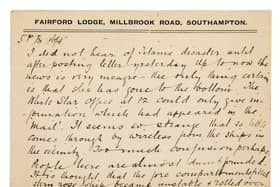 FAIRFORD LODGE, MILLBROOK ROAD, SOUTHAMPTON.
I did not hear of Titanic disaster until
after posting letter yesterday. Up to now the
news is very meagre - the only thing certain
is that she has gone to the bottom. The
White Star Office at 12 could only give in-
formation which had appeared in the
"Mail". It seems so strange that so little
comes through by wireless from the ships in
the vicinity. Too much confusion perhaps.
People here are almost dumbfounded.
It is thought that the fore compartments filled
stern rose, ship became unstable & rolled over